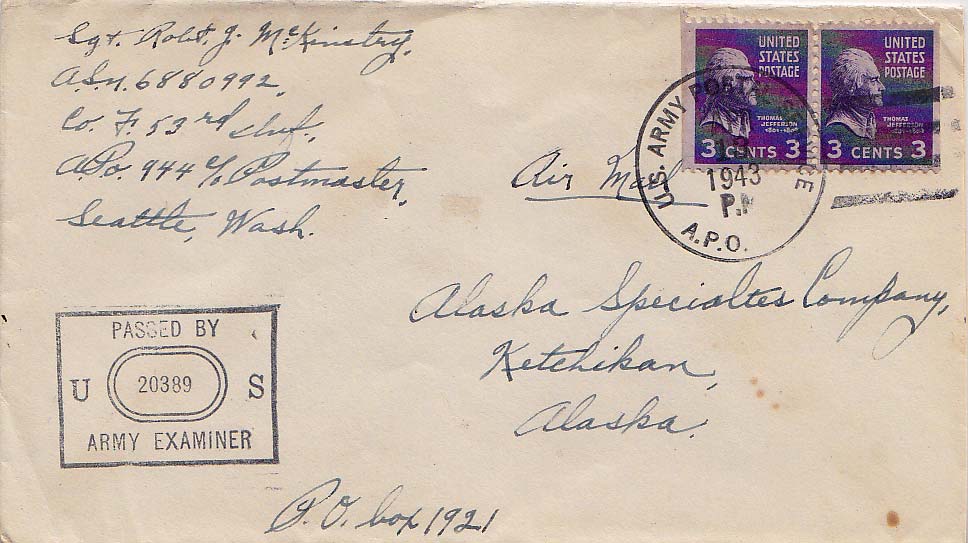 Sgt. Robt. J. McKinstry,
A.S.N. 6880992,
Co. F. 53rd Inf.,
A.P.O. 944 c/o Postmaster,
Seattle, Wash.
Air Mail
UNITED
STATES
POSTAGE
THOMAS
JEFFERSON
1801-1809
3 CENTS 3
UNITED
STATES
POSTAGE
THOMAS
JEFFERSON
1801-1809
3 CENTS 3
U.S. ARMY
1943
P.M
A.P.O.
Alaska Specialtes Company,
Ketchikan,
Alaska.
PASSED BY
U 20389 S
ARMY EXAMINER
P.O. box 1921